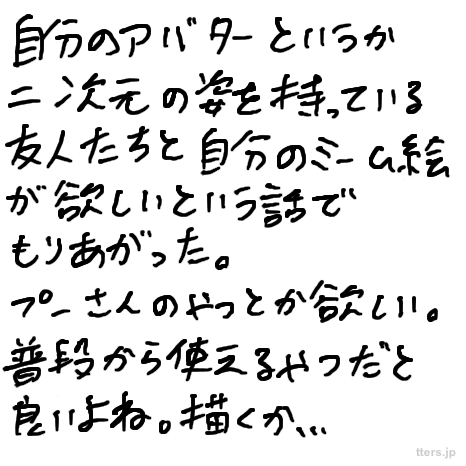 自分のアバターというか
二次元の姿を持っている
友人たちと自分のミーム絵
が欲しいという話で
もりあがった。
プーさんのやつとか欲しい。
普段から使えるやつだと
良いよね。描くか…
tters.jp